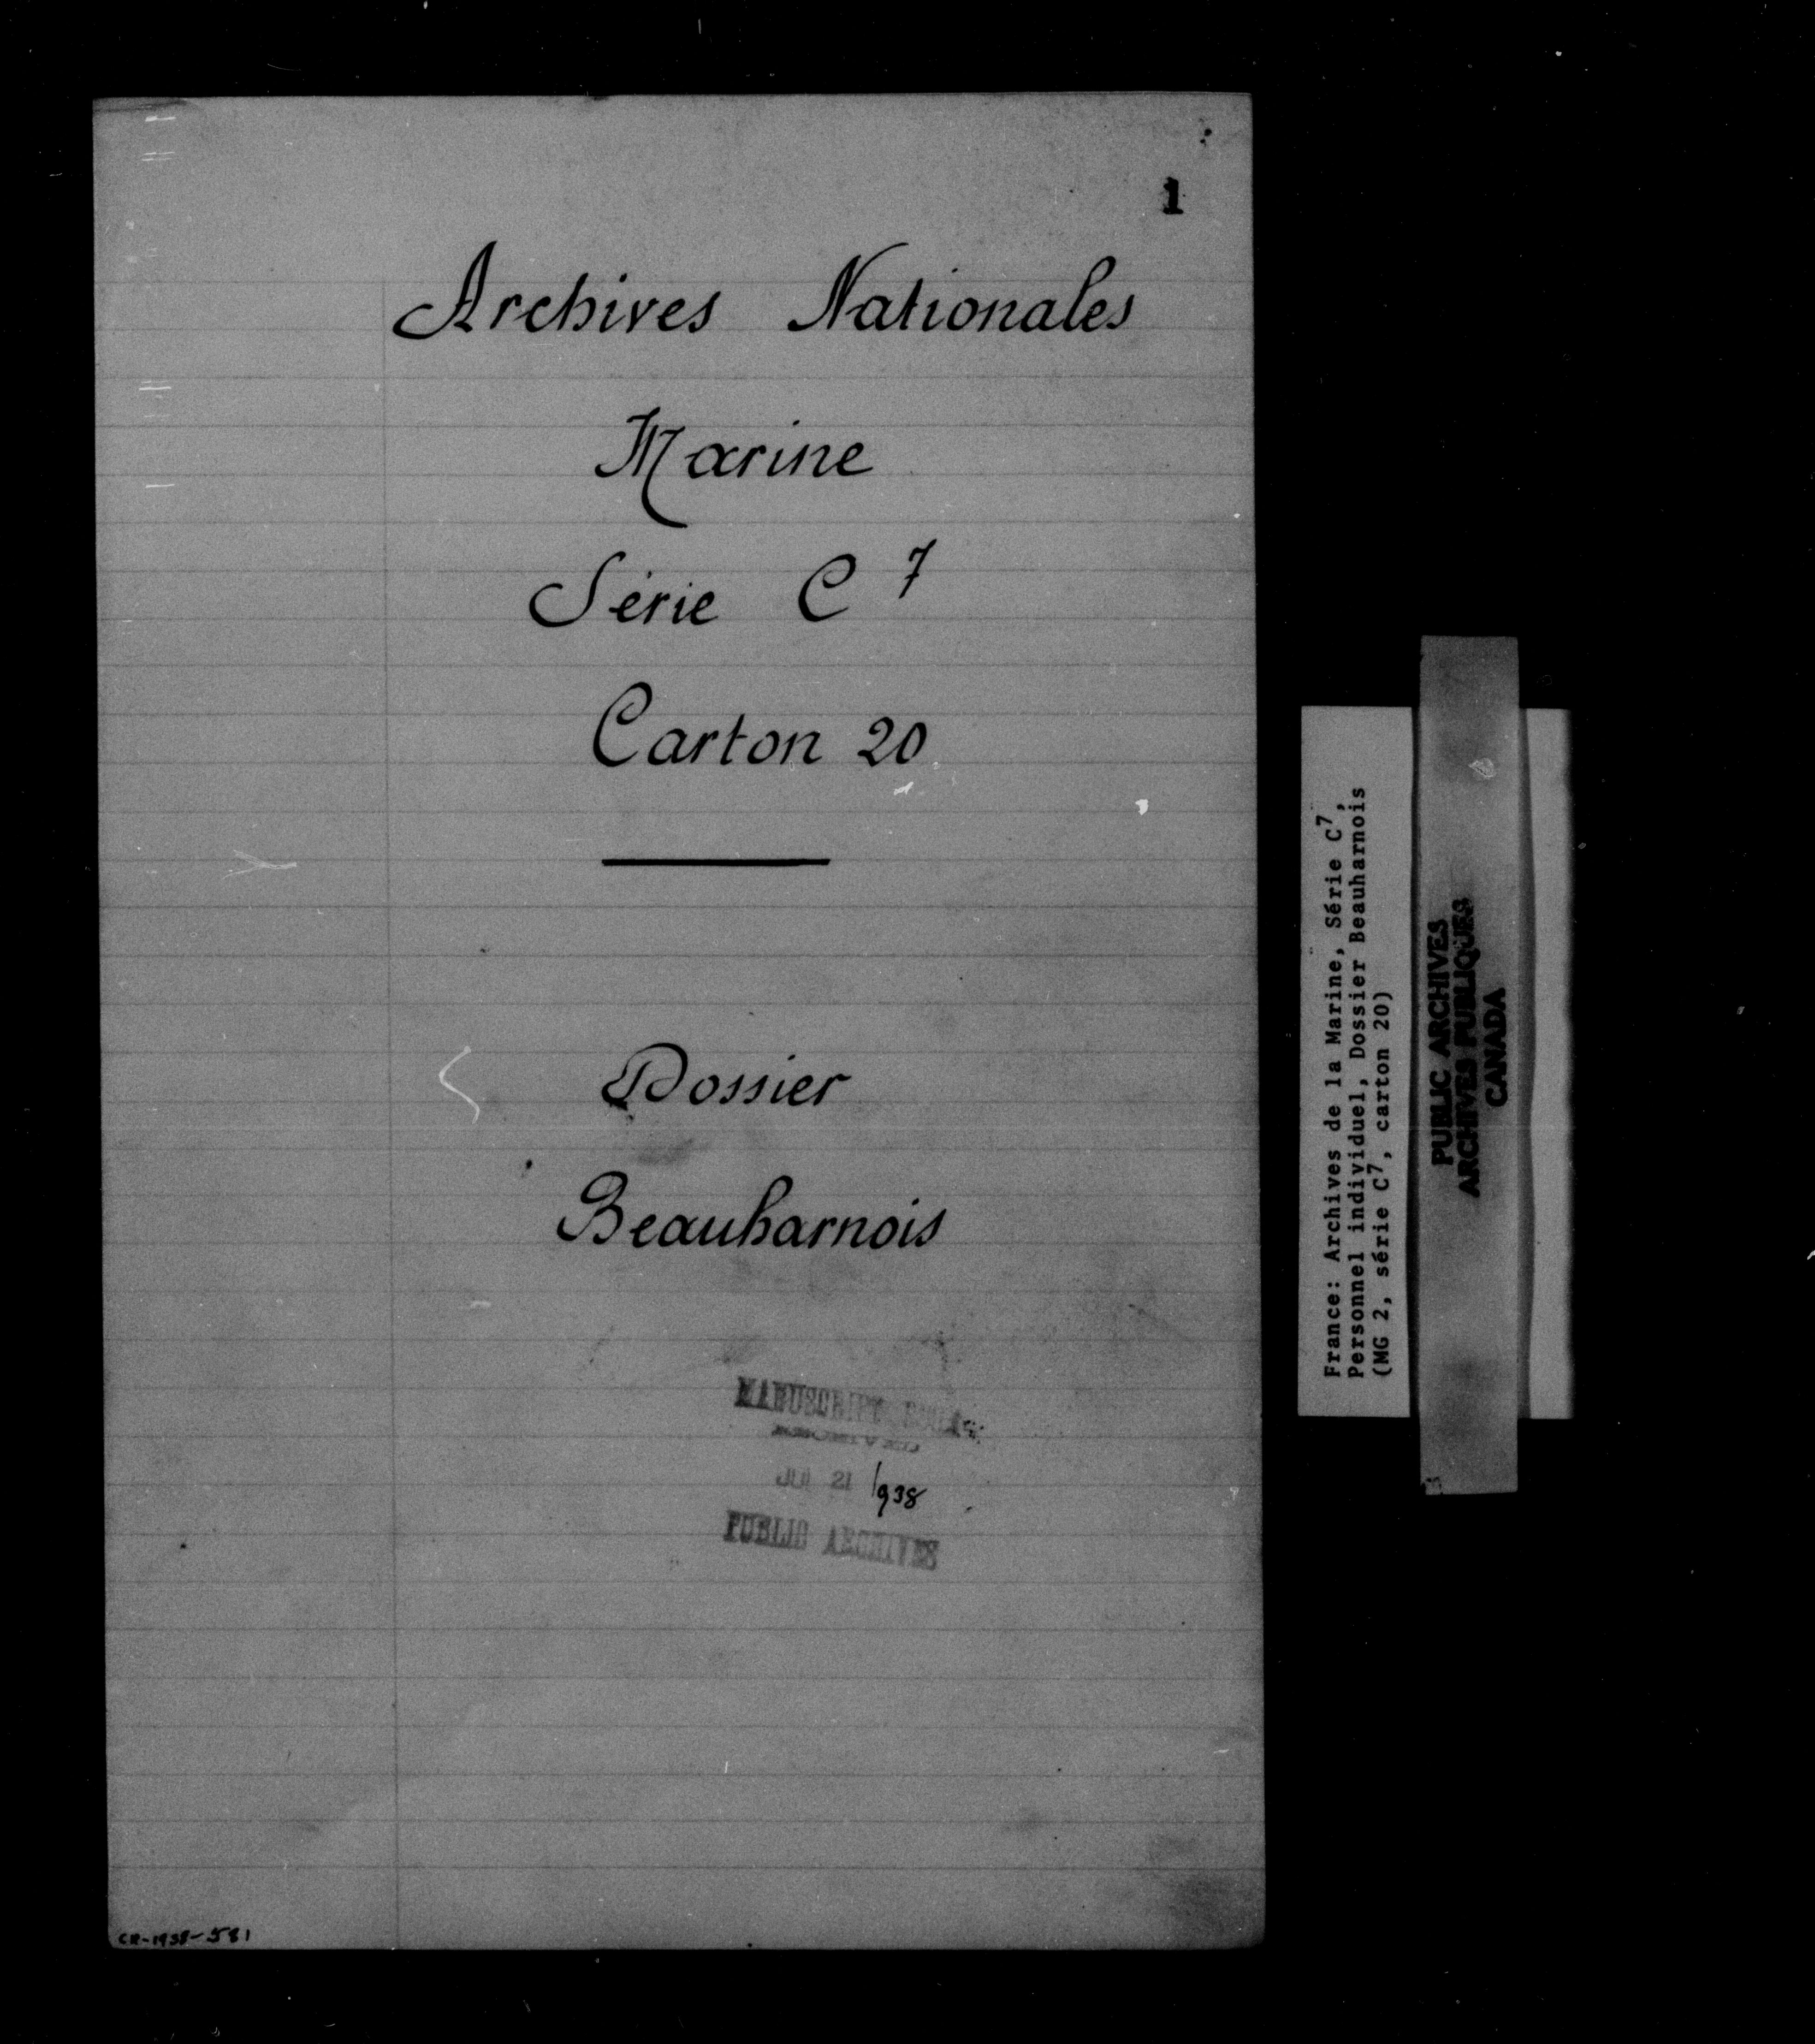 1
Archives Nationales
Marine
Série C 7
Carton 20
Dossier
Beauharnois
MANUSCRIPT
RECEIVED
JUL 21 1938
PUBLIC ARCHIVES
CR-1938-581
France: Archives de la Marine, Série C7,
Personnel individuel, Dossier Beauharnois
(MG 2, série C7, carton 20)
PUBLIC ARCHIVES
ARCHIVES PUBLIQUES
CANADA